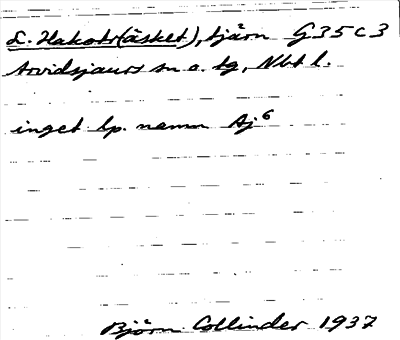 L. Hakotr(äsket), tjärn G35c3
Arvidsjaurs sn o. tg, Nbt l.
inget lp. namn Aj⁶
Björn Collinder 1937